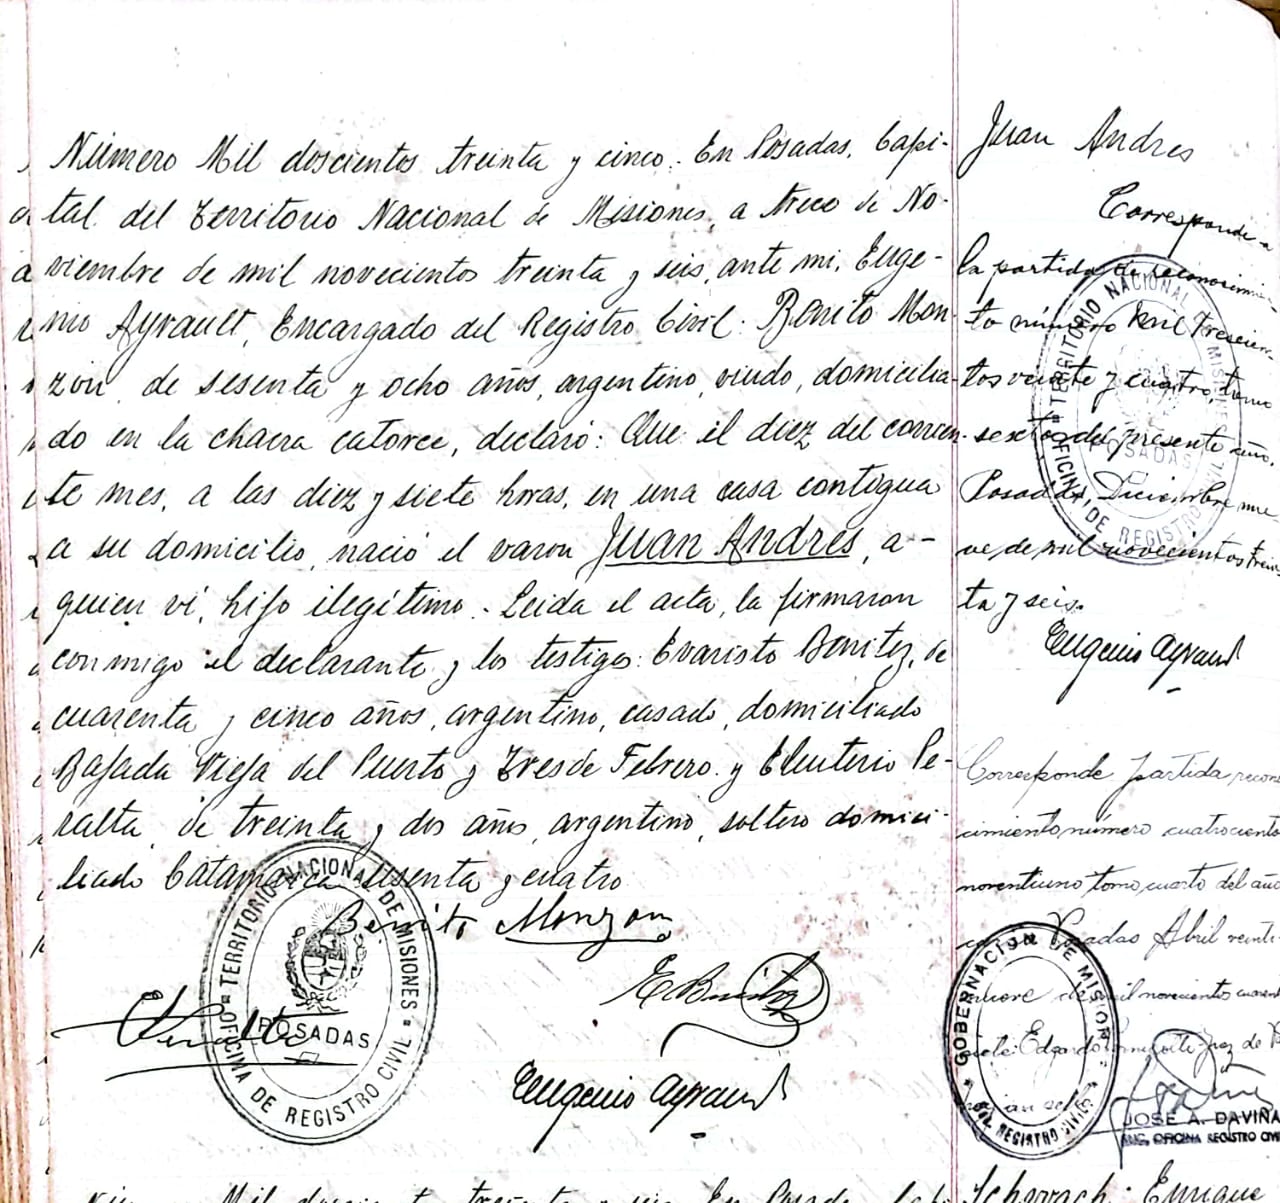 Número Mil doscientos treinta y cinco. En Posadas, Capi-
tal del Territorio Nacional de Misiones, a trece de No-
viembre de mil novecientos treinta y seis, ante mi, Euge-
nio Ayrault, Encargado del Registro Civil: Benito Mon-
zon, de sesenta y ocho años, argentino, viudo, domicilia-
do en la chacra catorce, declaró: Que el diez del corrien-
te mes, a las diez y siete horas, en una casa contigua
a su domicilio, nació el varon Juan Andres, a-
quien ví, hijo ilegítimo. Leida el acta, la firmaron
conmigo el declarante y los testigos: Evaristo Benitez, de
cuarenta y cinco años, argentino, casado, domiciliado
Bajada Vieja del Puerto y Tres de Febrero y Eleuterio Pe-
ralta, de treinta y dos años, argentino, soltero domici-
liado Catamarca sesenta y cuatro
Benito Monzon
E. Benitez
EPeralta
Eugenio Ayrault
TERRITORIO NACIONAL DE MISIONES
POSADAS
OFICINA DE REGISTRO CIVIL
Juan Andres
Corresponde a
la partida de reconocimien-
to número mil trescien-
tos veinte y cuatro, tomo
sexto del presente año.
Posadas, Diciembre nue-
ve de mil novecientos trein-
ta y seis.
Eugenio Ayrault
TERRITORIO NACIONAL MISIONES
POSADAS
OFICINA DE REGISTRO CIVIL
Corresponde partida recono
cimiento, número cuatrociento
noventiuno tomo cuarto del año
Posadas Abril veinti
de mil novecientos cuarent
Edgardo Juez de P
GOBERNACION DE MISIONES
REGISTRO CIVIL
JOSE A. DAVIÑA
ENC. OFICINA REGISTRO CIVI
Mil treinta y seis En Posadas
Enrique